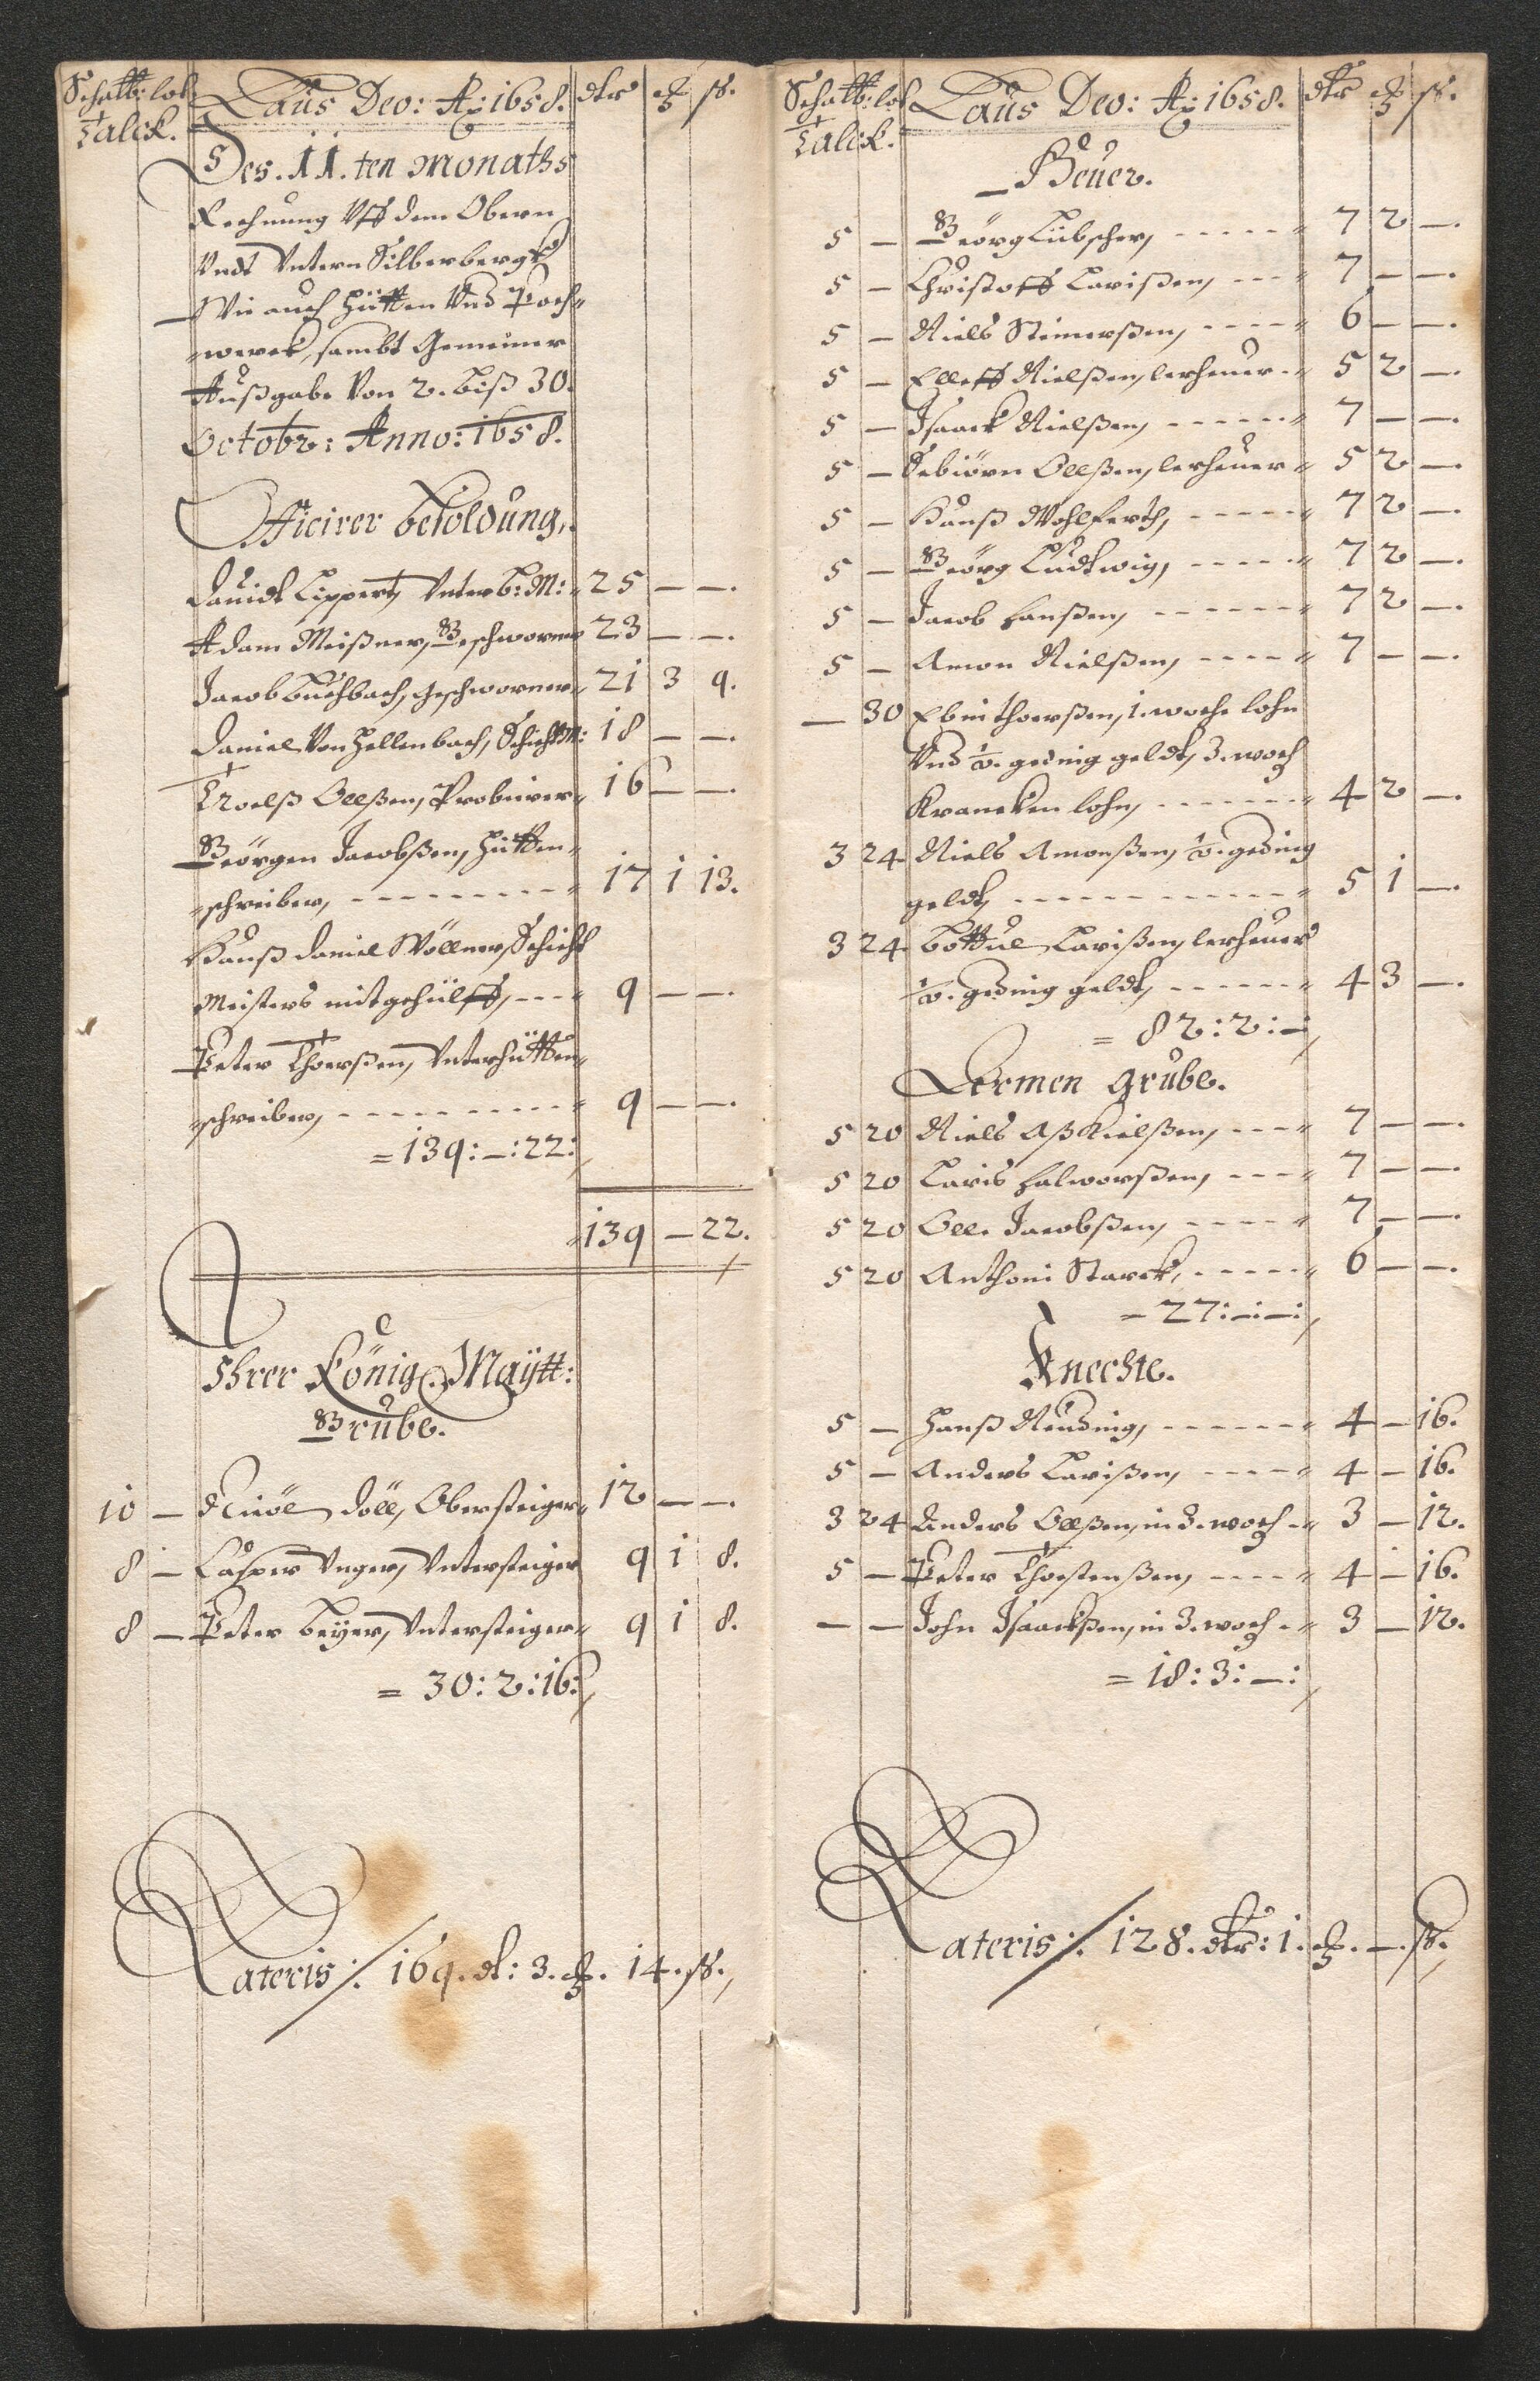 Schalb: lot
Talck.
Laus Deo: Ao 1658. dlr ort ß.
Des. 11. ten Monaths
Rechnung Vff dem Obern
Vndt Vntern Silberbergk
Wie auch Hütten Vnd Poch-
werck, sambt Gemeiner
Außgabe Von 2. biß 30.
Octobr: Anno: 1658.
Officirer besoldung.
Dauidt Lippert, Vnter b: M: 25 — —.
Adam Meißner, Geschworner 23 — —.
Jacob Buchbach, Geschworner 21 3 9.
Daniel Von Hellenbach, Schicht M: 18 — —.
Troelß Ollßen, Probierer 16 — —.
Geörgen Jacobßen, Hütten-
schreiber, 17 1 13.
Hanß Daniel Wöllner, Schicht
Meisters mitgehülff, 9 — —.
Peter Thorßen, Vnterhütten-
schreiber, 9 — —.
= 139: —: 22:
139 — 22.
Ihrer König. Maÿtt:
Grube.
10 — Döll, Obersteiger 12 — —.
8 — Casper Unger, Vntersteiger 9 1 8.
8 — Peter Beÿer, Vntersteiger 9 1 8.
= 30: 2: 16:
Lateris: 169. dl: 3. ort. 14. ß.
Schalb: lot
Talck.
Laus Deo: Ao 1658. dlr ort ß.
Heuer.
5 — Geörg Lübscher, 7 2 —.
5 — Christoff Larißen, 7 — —.
5 — Niels Steinerßen, 6 — —.
5 — Elleff Nielßen, lerheuer 5 2 —.
5 — Isaack Nielßen, 7 — —.
5 — Sebiörn Ollßen, lerheuer 5 2 —.
5 — Hanß Wohlferth, 7 2 —.
5 — Geörg Ludtwig, 7 2 —.
5 — Jacob Hanßen, 7 2 —.
5 — Amon Nielßen, 7 — —.
— 30 Thorßen, 1. woche lohn
Vnd geding geldt, 3. woch
Krancken lohn, 4 2 —.
3 24 Niels Amonßen, geding
geldt, 5 1 —.
3 24 Bottul Larißen, lerheuer
geding geldt, 4 3 —.
= 82: 2: —
Lermen Grube.
5 20 Niels Aßkielßen, 7 — —.
5 20 Laris Halworßen, 7 — —.
5 20 Olle Jacobßen, 7 — —.
5 20 Anthoni Starck, 6 — —.
= 27: —: —:
Knechte.
5 — Hanß Neuding, 4 — 16.
5 — Anders Larißen, 4 — 16.
3 24 Anders Ollßen, in 3. woch 3 — 12.
5 — Peter Thorstenßen, 4 — 16.
— — John Isaackßen, in 3. woch 3 — 12.
= 18: 3: —:
Lateris: 128. dlr: 1. ort. —. ß.